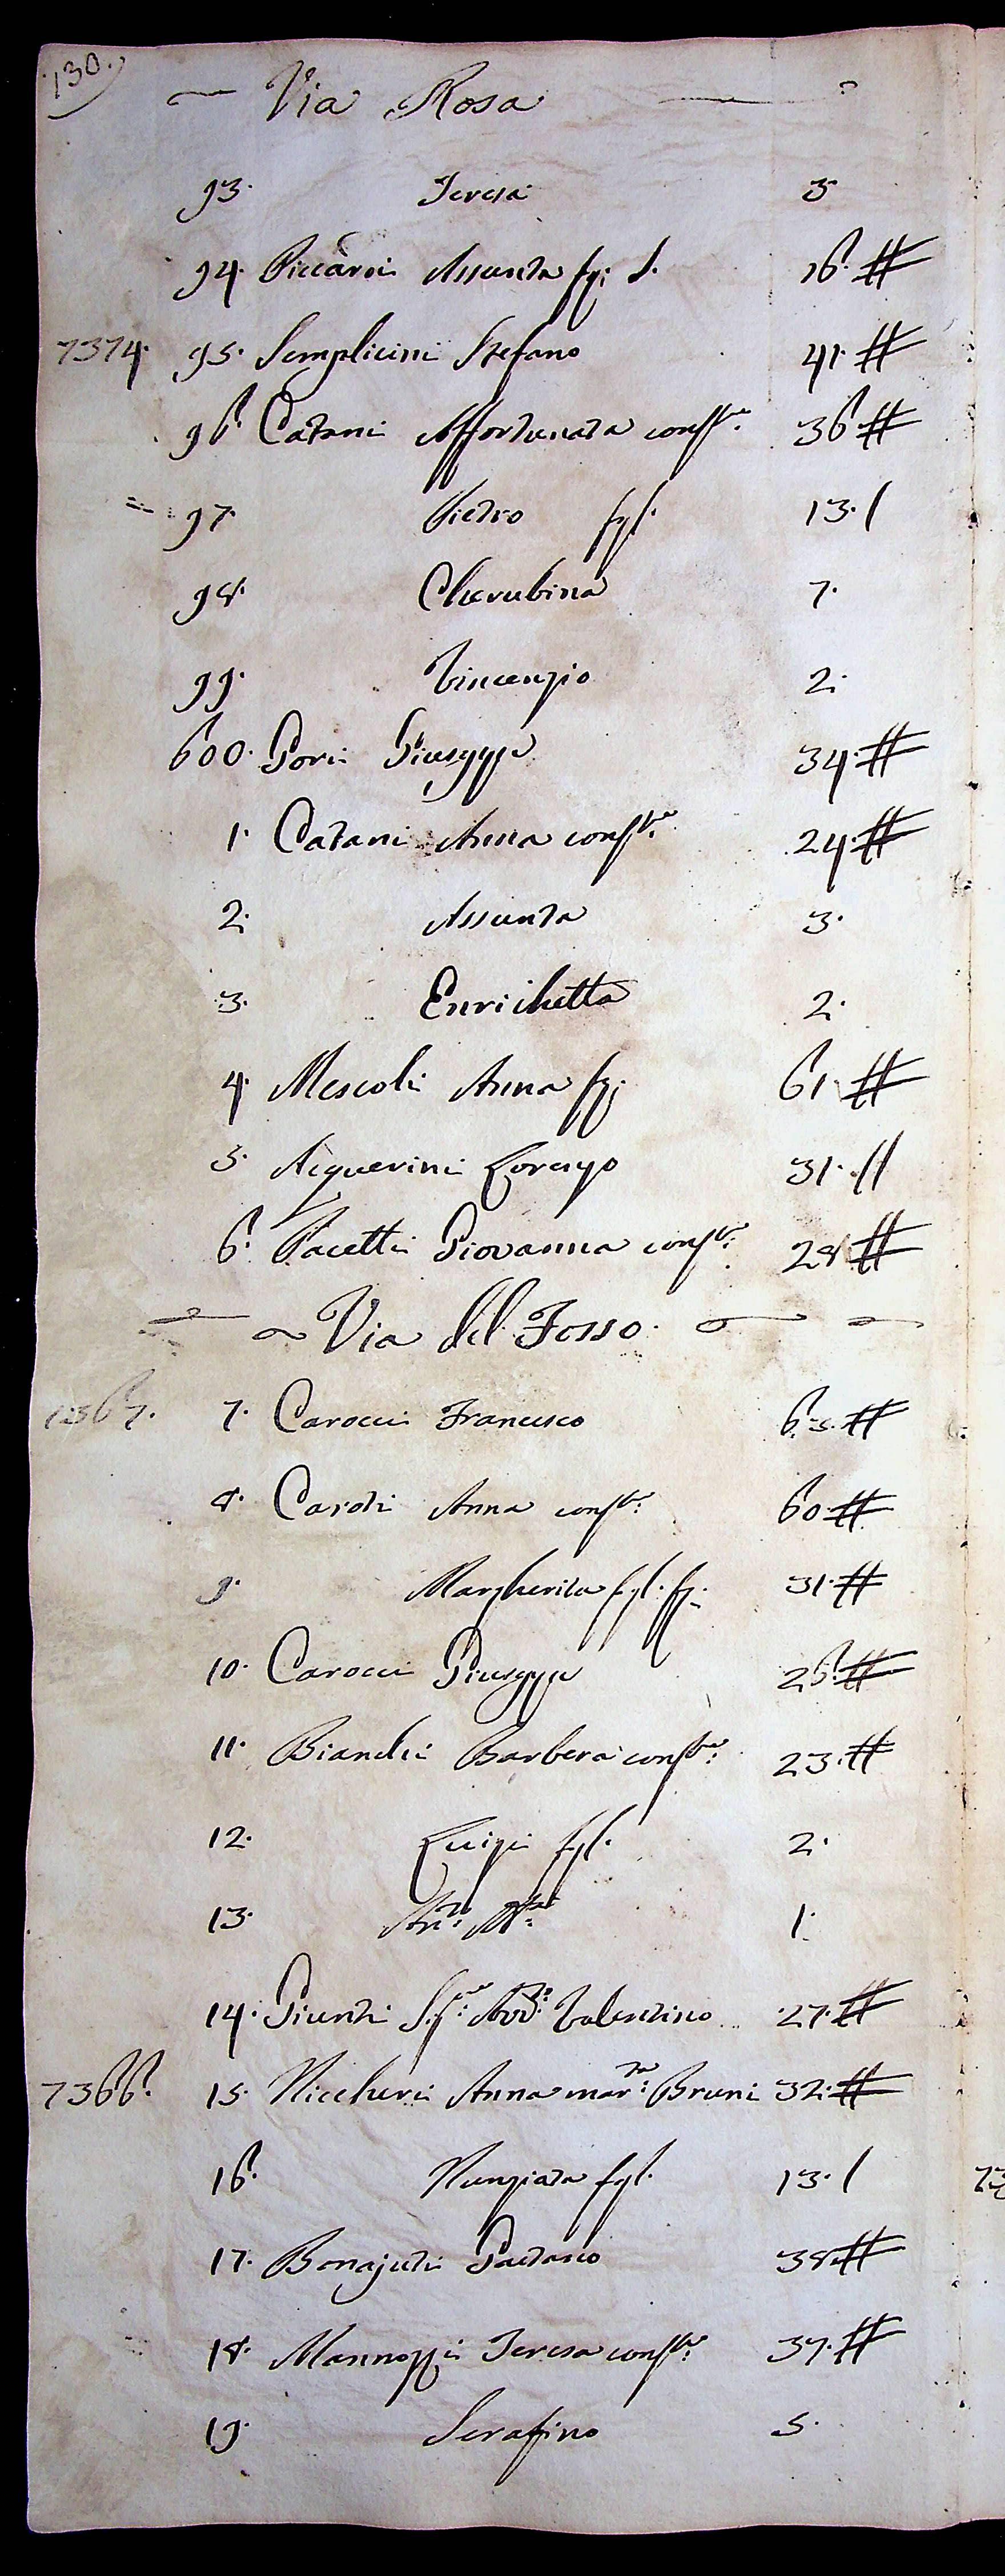 130.
Via Rosa
93. Teresa 3
94. Piccardi Assunta fg: S. 16. #
7374. 95. Semplicini Stefano 41. #
96. Catani Affortunata conste. 36 #
97. Pietro fgl. 13. /
98. Cherubina 7.
99. Vincenzio 2.
600. Gori Giuseppe 34. #
1. Catani Anna conste. 24. #
2. Assunta 3.
3. Enrichetta 2.
4. Mescoli Anna fg: 61 #
5. Lorenzo 31. //
6. Pacetti Giovanna conste: 28. #
Via del Fosso.
7367. 7. Carocci Francesco 63. #
8. Caroti Anna conste: 60 #
9. Margherita fgl. fg: 31. #
10. Carocci Giuseppe 26. #
11. Bianchi Barbera conste: 23. #
12. Luigi fgl. 2.
13. 1.
14. Giunti Valentino 27. #
7366. 15. Niccheri Anna marta: Bruni 32. #
16. Nunziata fgl. 13. /
17. Bonajuti Gaetano 38 #
18. Mannozzi Teresa conste: 37. #
19. Serafino 5.